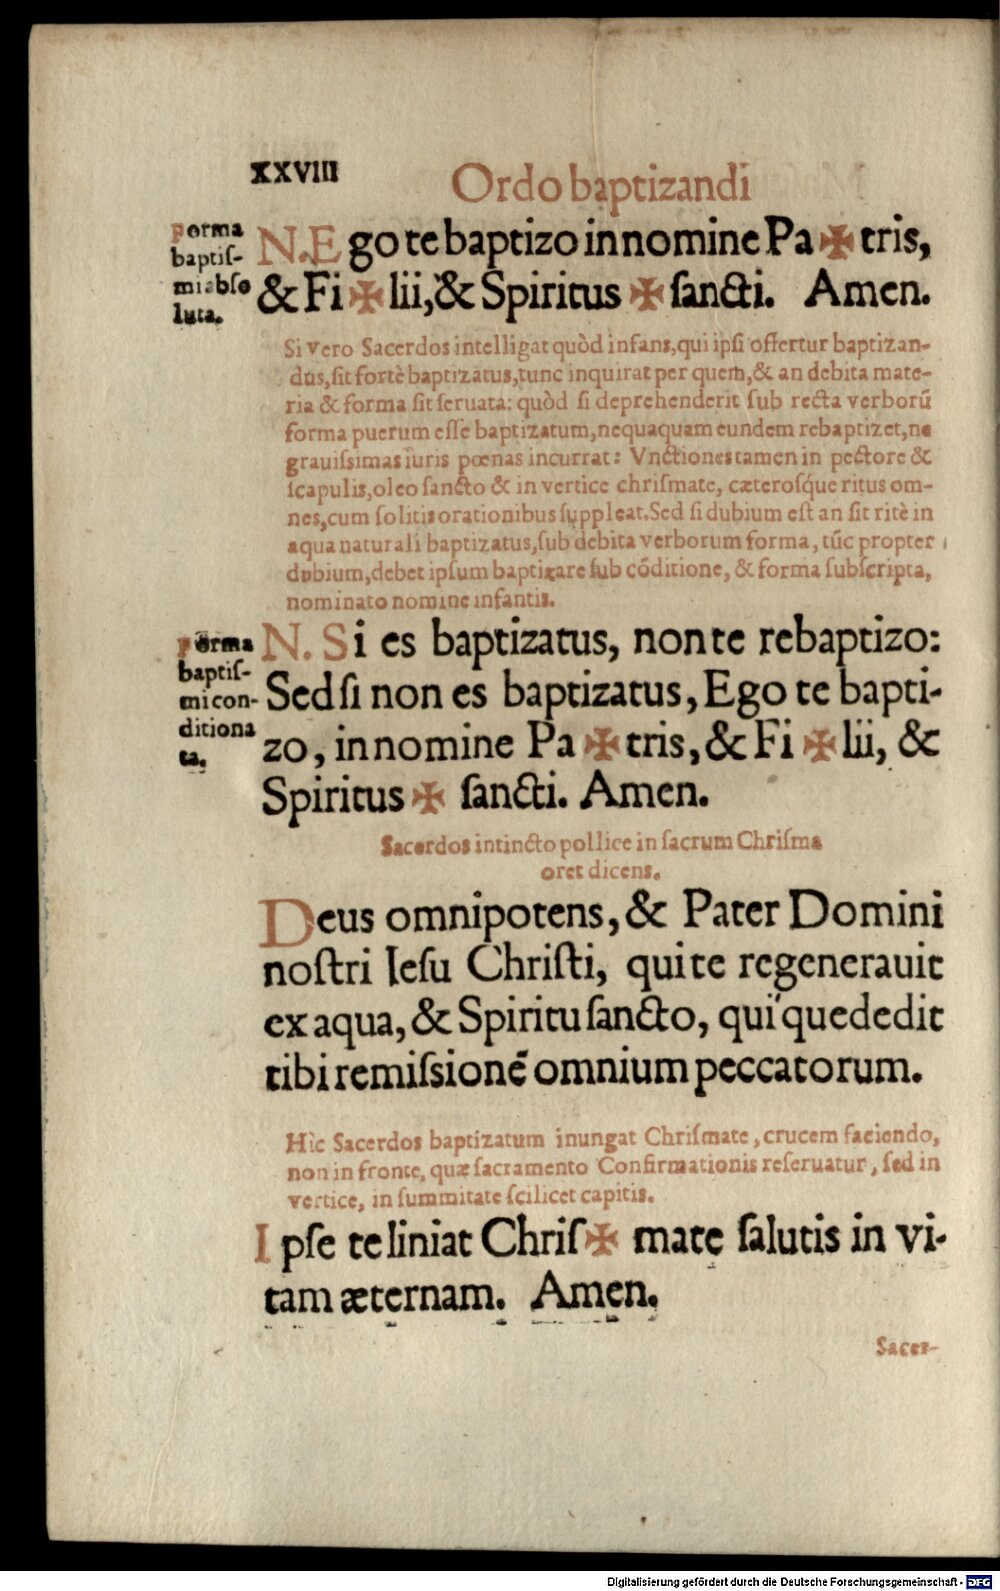 XXVIII
Ordo baptizandi
Forma
baptiſ-
mi abſo
luta.
N. Ego te baptizo in nomine Pa ✠ tris,
& Fi ✠ lii, & Spiritus ✠ ſancti. Amen.
Si vero Sacerdos intelligat quòd infans, qui ipſi offertur baptizan-
dus, ſit fortè baptizatus, tunc inquirat per quem, & an debita mate-
ria & forma ſit ſeruata: quòd ſi deprehenderit ſub recta verborū
forma puerum eſſe baptizatum, nequaquam eundem rebaptizet, ne
grauiſsimas iuris pœnas incurrat: Vnctiones tamen in pectore &
ſcapulis, oleo ſancto & in vertice chriſmate, cæteroſq́ue ritus om-
nes, cum ſolitis orationibus ſuppleat. Sed ſi dubium eſt an ſit ritè in
aqua naturali baptizatus, ſub debita verborum forma, tūc propter
dubium, debet ipſum baptizare ſub cōditione, & forma ſubſcripta,
nominato nomine infantis.
Forma
baptiſ-
mi con-
ditiona
ta.
N. Si es baptizatus, non te rebaptizo:
Sed ſi non es baptizatus, Ego te bapti-
zo, in nomine Pa ✠ tris, & Fi ✠ lii, &
Spiritus ✠ ſancti. Amen.
Sacerdos intincto pollice in ſacrum Chriſma
oret dicens.
Deus omnipotens, & Pater Domini
noſtri Ieſu Chriſti, qui te regenerauit
ex aqua, & Spiritu ſancto, qui'que dedit
tibi remiſsionē omnium peccatorum.
Hìc Sacerdos baptizatum inungat Chriſmate, crucem faciendo,
non in fronte, quæ ſacramento Confirmationis reſeruatur, ſed in
vertice, in ſummitate ſcilicet capitis.
Ipſe te liniat Chriſ ✠ mate ſalutis in vi-
tam æternam. Amen.
Sacer-
Digitalisierung gefördert durch die Deutsche Forschungsgemeinschaft - DFG